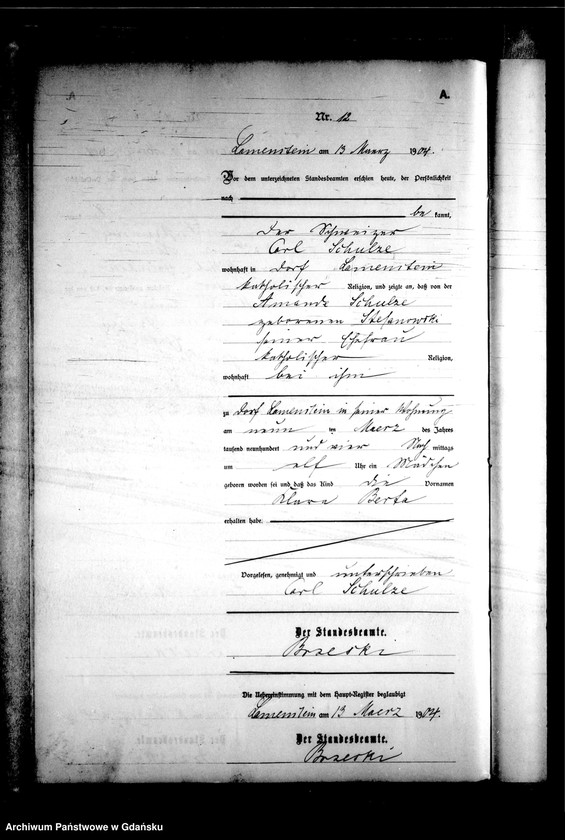 A.
Nr. 12
Lamenstein am 13 Maerz 1904.
Vor dem unterzeichneten Standesbeamten erschien heute, der Persönlichkeit
nach
be kannt,
der Schweizer
Carl Schulze
wohnhaft in Dorf Lamenstein
katholischer Religion, und zeigte an, daß von der
Amanda Schulze
geborenen Stefanowski
seiner Ehefrau
katholischer Religion,
wohnhaft bei ihm
zu Dorf Lamenstein in seiner Wohnung
am neun ten Maerz des Jahres
tausend neunhundert und vier Nach mittags
um elf Uhr ein Mädchen
geboren worden sei und daß das Kind die Vornamen
Klara Berta
erhalten habe.
Vorgelesen, genehmigt und unterschrieben
Carl Schulze
Der Standesbeamte.
Brzeski
Die Uebereinstimmung mit dem Haupt-Register beglaubigt
Lamenstein am 13 Maerz 1904.
Der Standesbeamte.
Brzeski
Archiwum Państwowe w Gdańsku